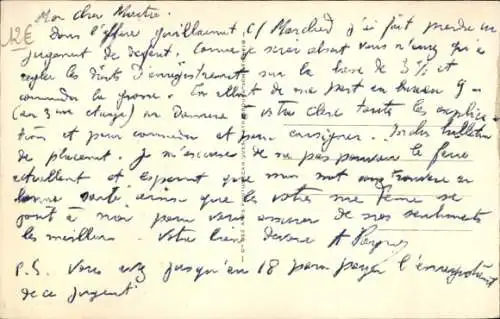 12€
Mon cher Maître.
Dans l'affaire Guillaumet c/ Marchad j'ai fait prendre un
jugement de défaut. Comme je serai absent vous n'aurez qu'à
régler les droits d'enregistrement sur la base de 3% et
commander la grosse. En allant de ma part au bureau 9
(au 3me étage) on donnera à votre clerc toutes les explica
tions et pour commander et pour consigner.
de placement. Je m'excuse de ne pas pouvoir le faire
actuellement et espérant que mon mot vous trouvera en
bonne santé ainsi que les vôtres ma femme se
joint à moi pour vous assurer de nos sentiments
les meilleurs. Votre bien dévoué A
P.S. Vous avez jusqu'au 18 pour payer l'enregistrement
de ce jugement